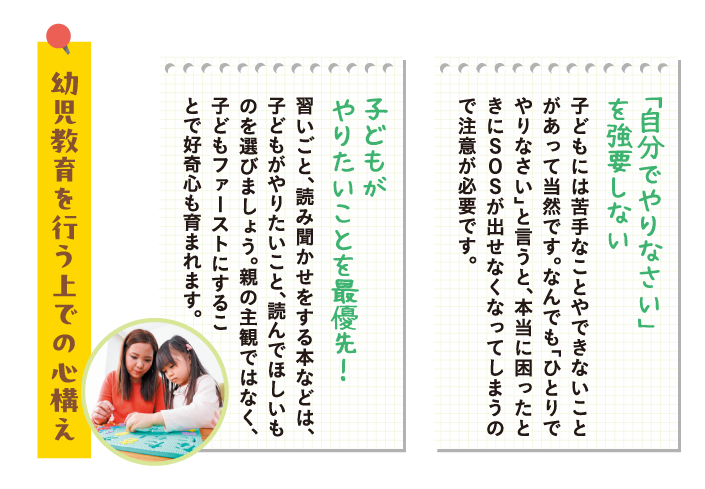 「自分でやりなさい」
を強要しない
子どもには苦手なことやできないこと
があって当然です。なんでも「ひとりで
やりなさい」と言うと、本当に困ったと
きにSOSが出せなくなってしまうの
で注意が必要です。
子どもが
やりたいことを最優先！
習いごと、読み聞かせをする本などは、
子どもがやりたいこと、読んでほしいも
のを選びましょう。親の主観ではなく、
子どもファーストにするこ
とで好奇心も育まれます。
幼児教育を行う上での心構え